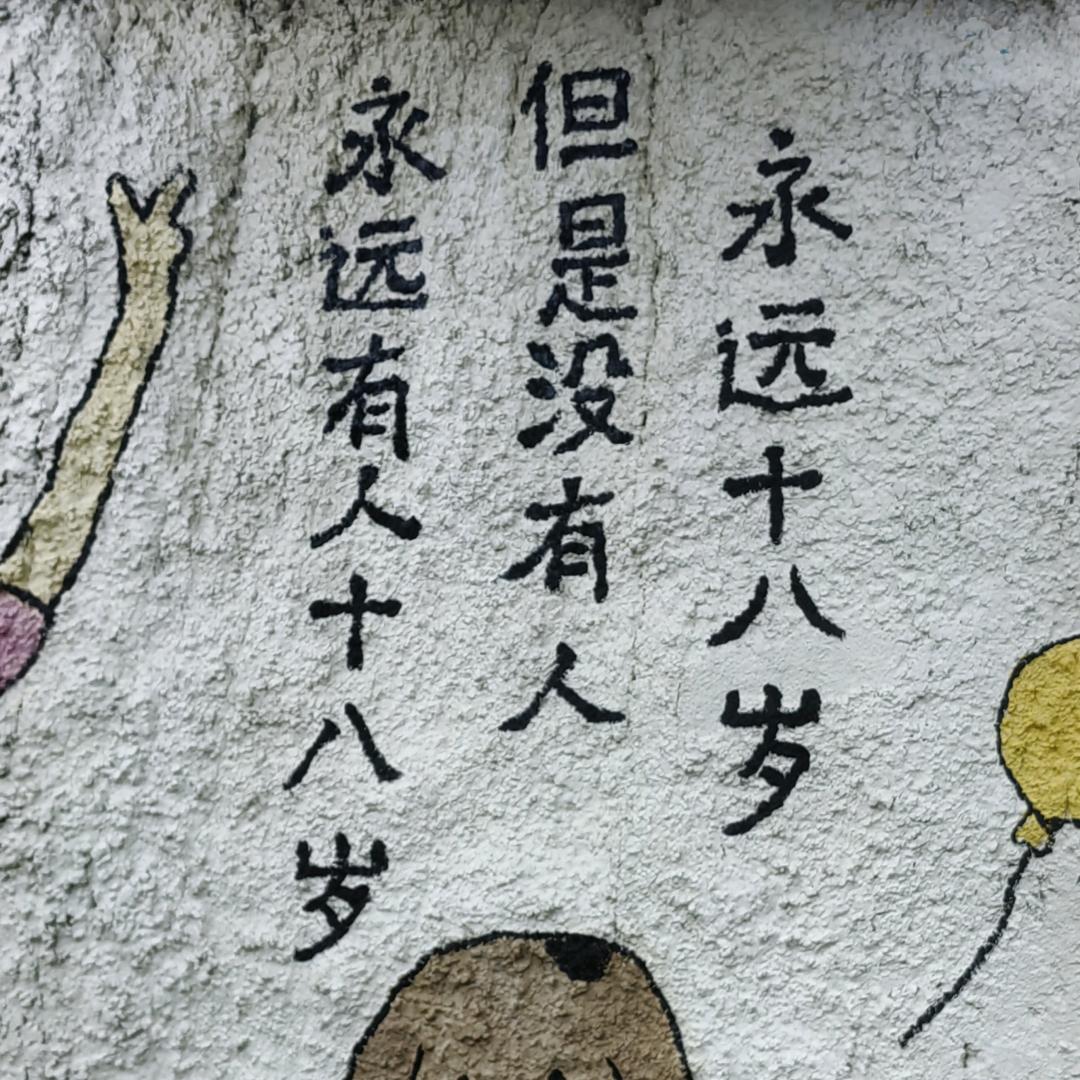 永远有人十八岁
但是没有人
永远十八岁